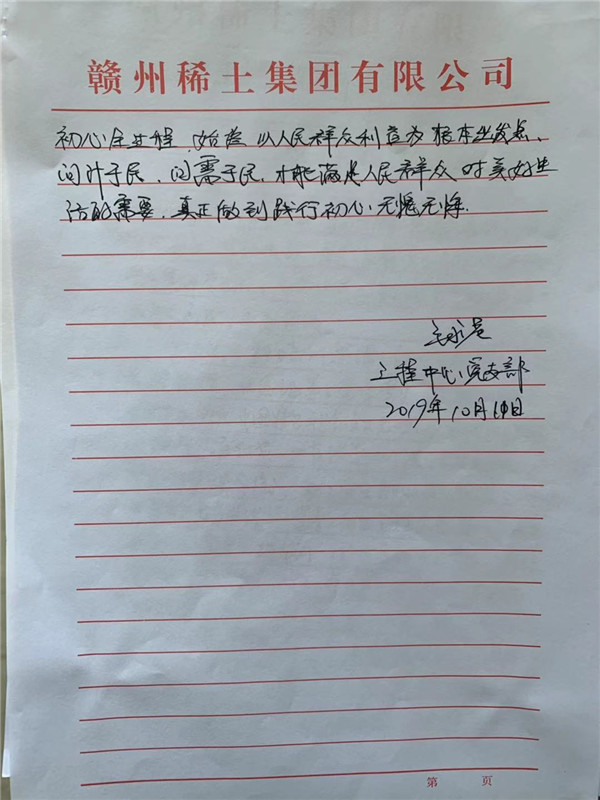 赣州稀土集团有限公司
初心全过程，始终以人民群众利益为根本出发点、
问计于民、问需于民，才能满足人民群众对美好生
活的需要，真正做到践行初心，无愧无悔。
工程中心党支部
2019年10月 日
第 页